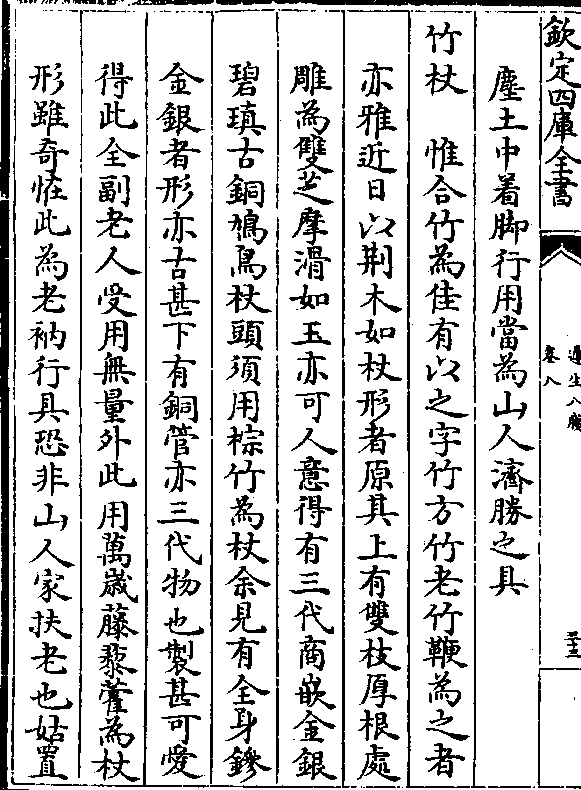 欽定四庫全書
遵生八牋
卷八
三十三
塵土中着脚行用當為山人濟勝之具
竹杖　惟合竹為佳有以之字竹方竹老竹鞭為之者
亦雅近日以荆木如杖形者原其上有雙枝厚根處
雕為雙芝摩滑如玉亦可人意得有三代商嵌金銀
碧瑱古銅鳩鳥杖頭須用棕竹為杖余見有全身鏒
金銀者形亦古甚下有銅管亦三代物也製甚可愛
得此全副老人受用無量外此用萬歳藤藜藿為杖
形雖奇恠此為老衲行具恐非山人家扶老也姑置